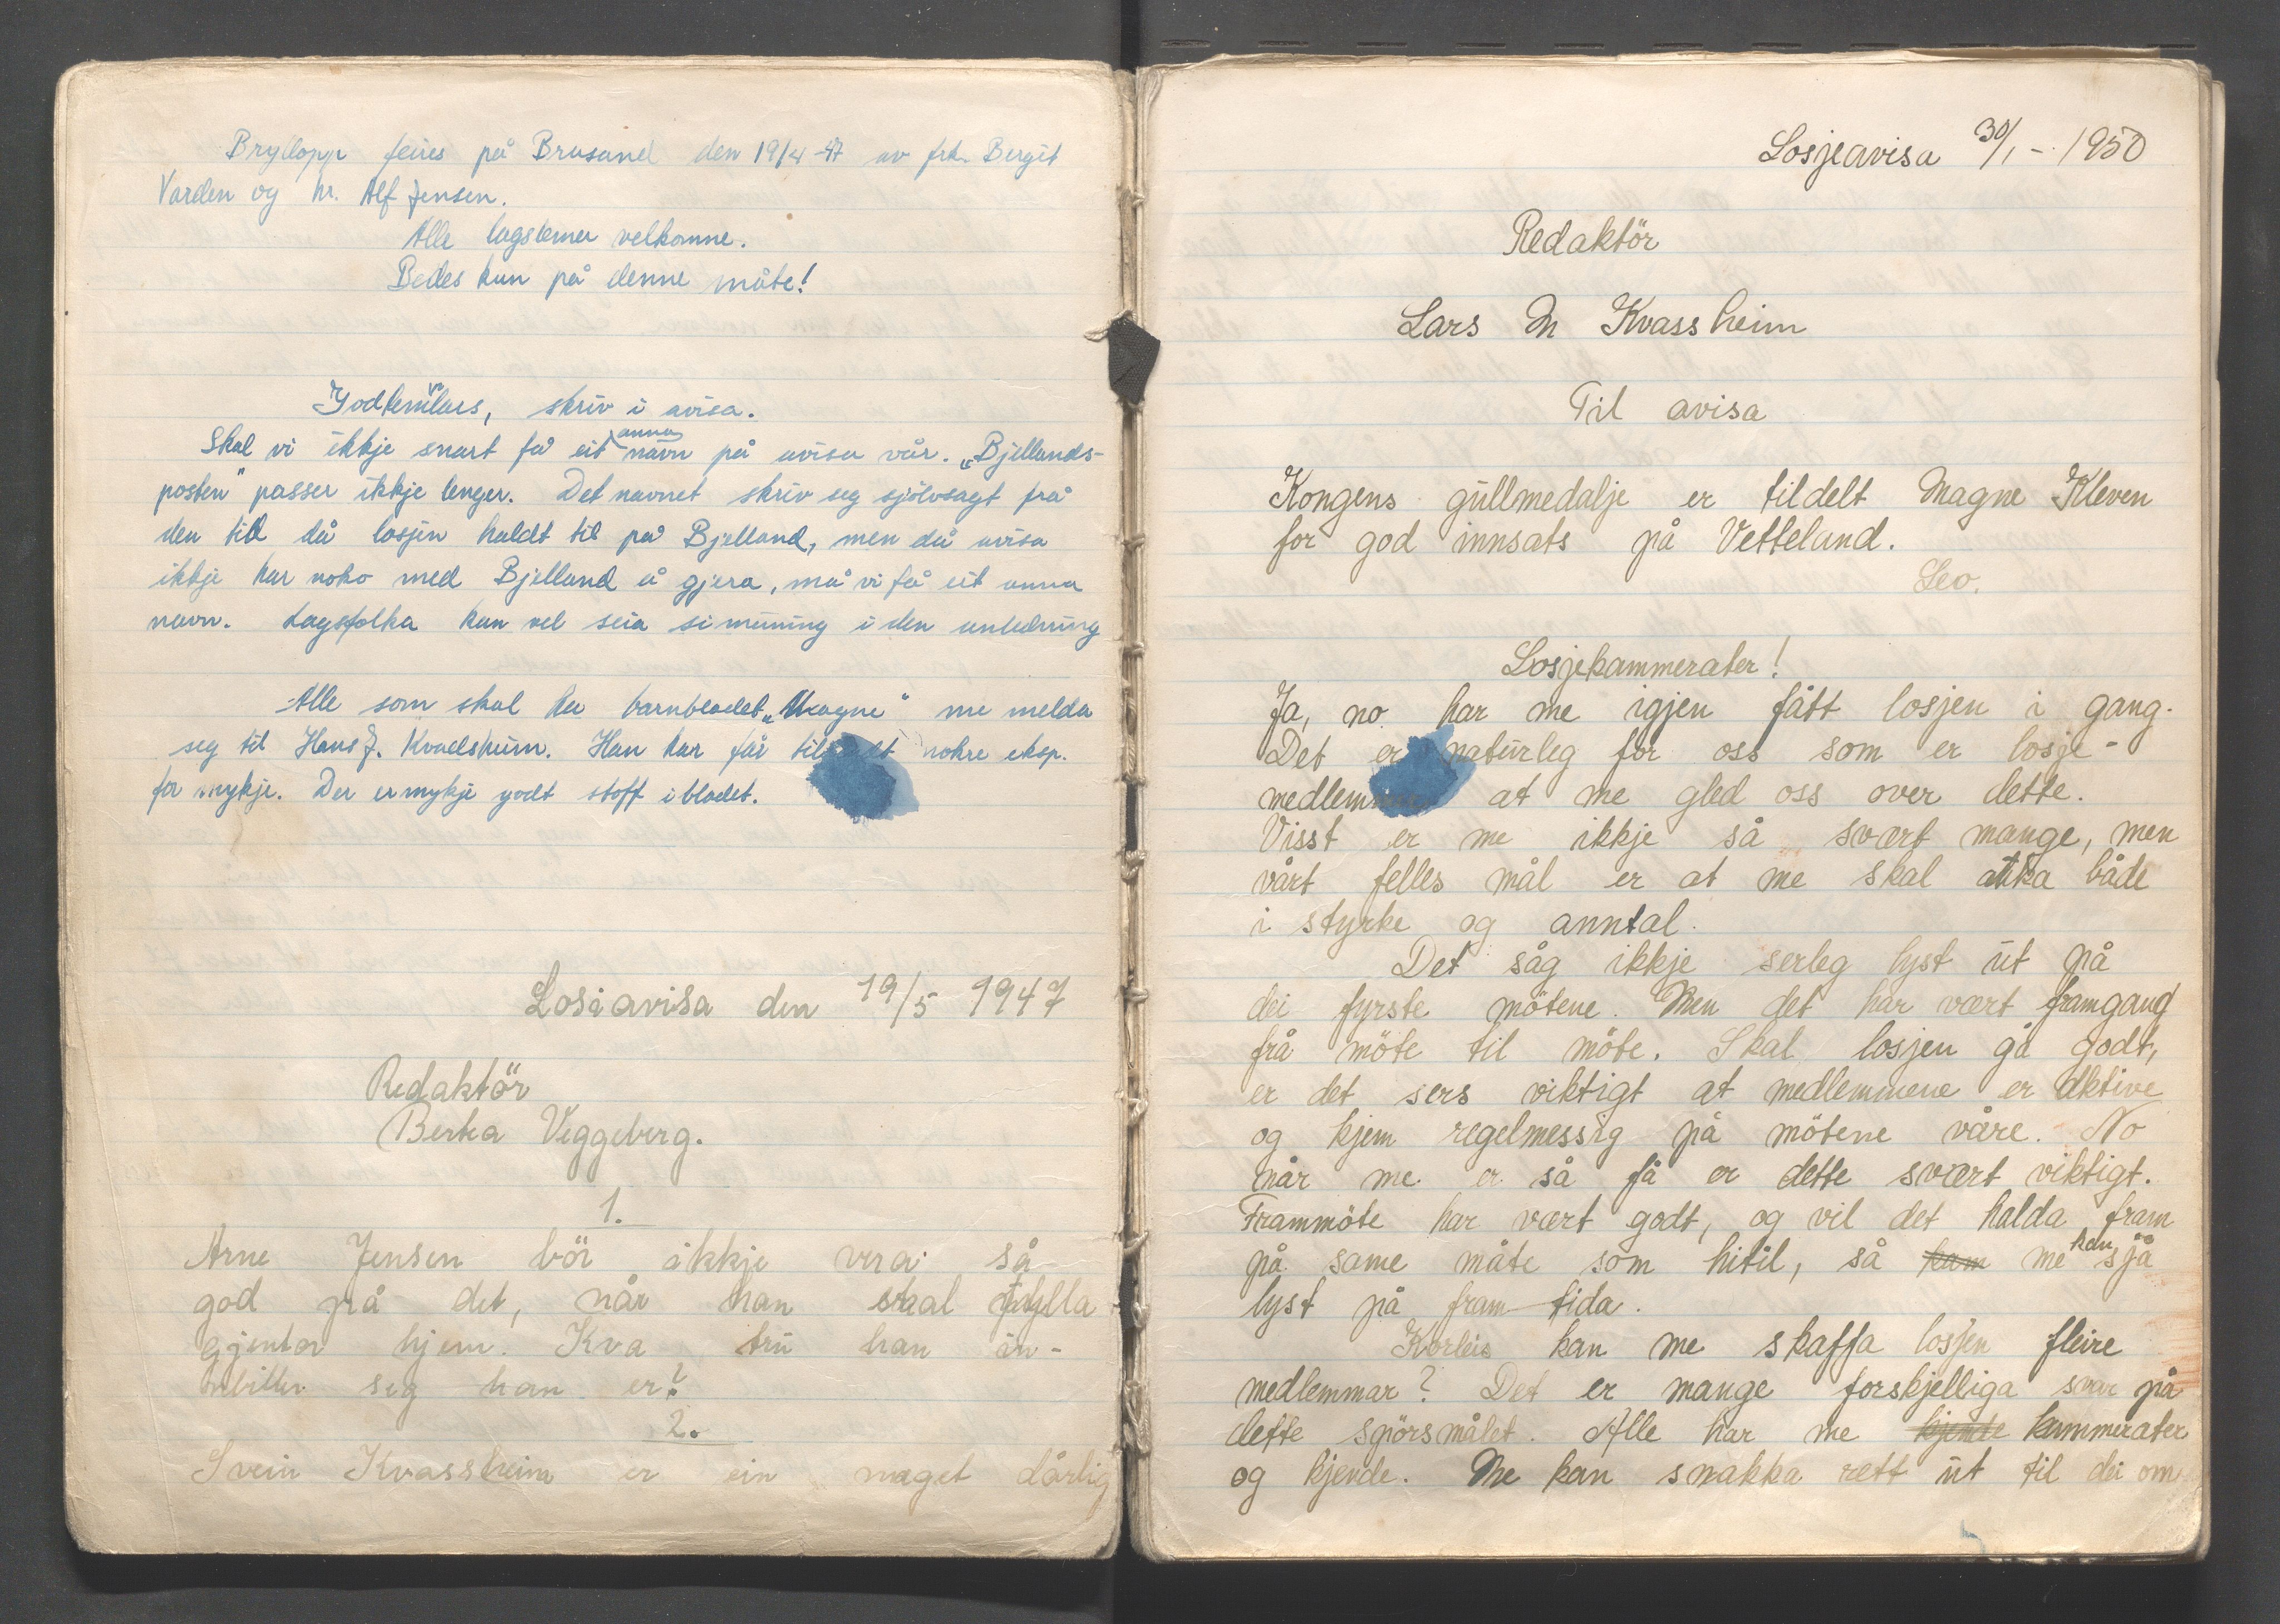 Bryllopp feires på Brusand den 19/4-47 av frk. Bergit
Varden og hr. Alf Jensen.
Alle lagslemer velkomne.
Bedes kun på denne måte!
skriv i avisa.
Skal vi ikkje snart få eit anna navn på avisa vår. „Bjellands-
posten" passer ikkje lenger. Det navnet skriv seg sjölvsagt frå
den tid då losjen haldt til på Bjelland, men då avisa
ikkje har noko med Bjelland å gjera, må vi få eit anna
navn. Lagsfolka kan vel seia si meining i den anledning
Alle som skal ha barnbladet „Magne" me melda
seg til Hans J. Kvadsheim. Han har får nokre eksp.
for mykje. Der er mykje godt stoff i bladet.
Losiavisa den 19/5 1947
Redaktör
Berta Veggeberg.
1.
Arne Jensen bör ikkje vera så
god på det, når han skal fylla
gjentor hjem. Kva tru han in-
nbiller seg han er?
2.
Svein Kvassheim er ein maget dårlig
Losjeavisa 30/1 - 1950
Redaktör
Lars M Kvassheim
Til avisa
Kongens gullmedalje er tildelt Magne Kleven
for god innsats på Vetteland.
Leo.
Losjekammerater!
Ja, no har me igjen fått losjen i gang.
Det er naturleg for oss som er losje-
medlemmer at me gled oss over dette.
Visst er me ikkje så svært mange, men
vårt felles mål er at me skal auka både
i styrke og anntal.
Det såg ikkje serleg lyst ut på
dei fyrste mötene. Men det har vært framgang
frå möte til möte. Skal losjen gå godt,
er det sers viktigt at medlemmene er aktive
og kjem regelmessig på mötene våre. No
når me er så få er dette svært viktigt.
Frammöte har vært godt, og vil det halda fram
på same måte som hitil, så kam me kan sjå
lyst på fram-tida.
Korleis kan me skaffa losjen fleire
medlemmar? Det er mange forskjelliga svar på
dette spörsmålet. Alle har me kjende kammerater
og kjende. Me kan snakka rett ut til dei om